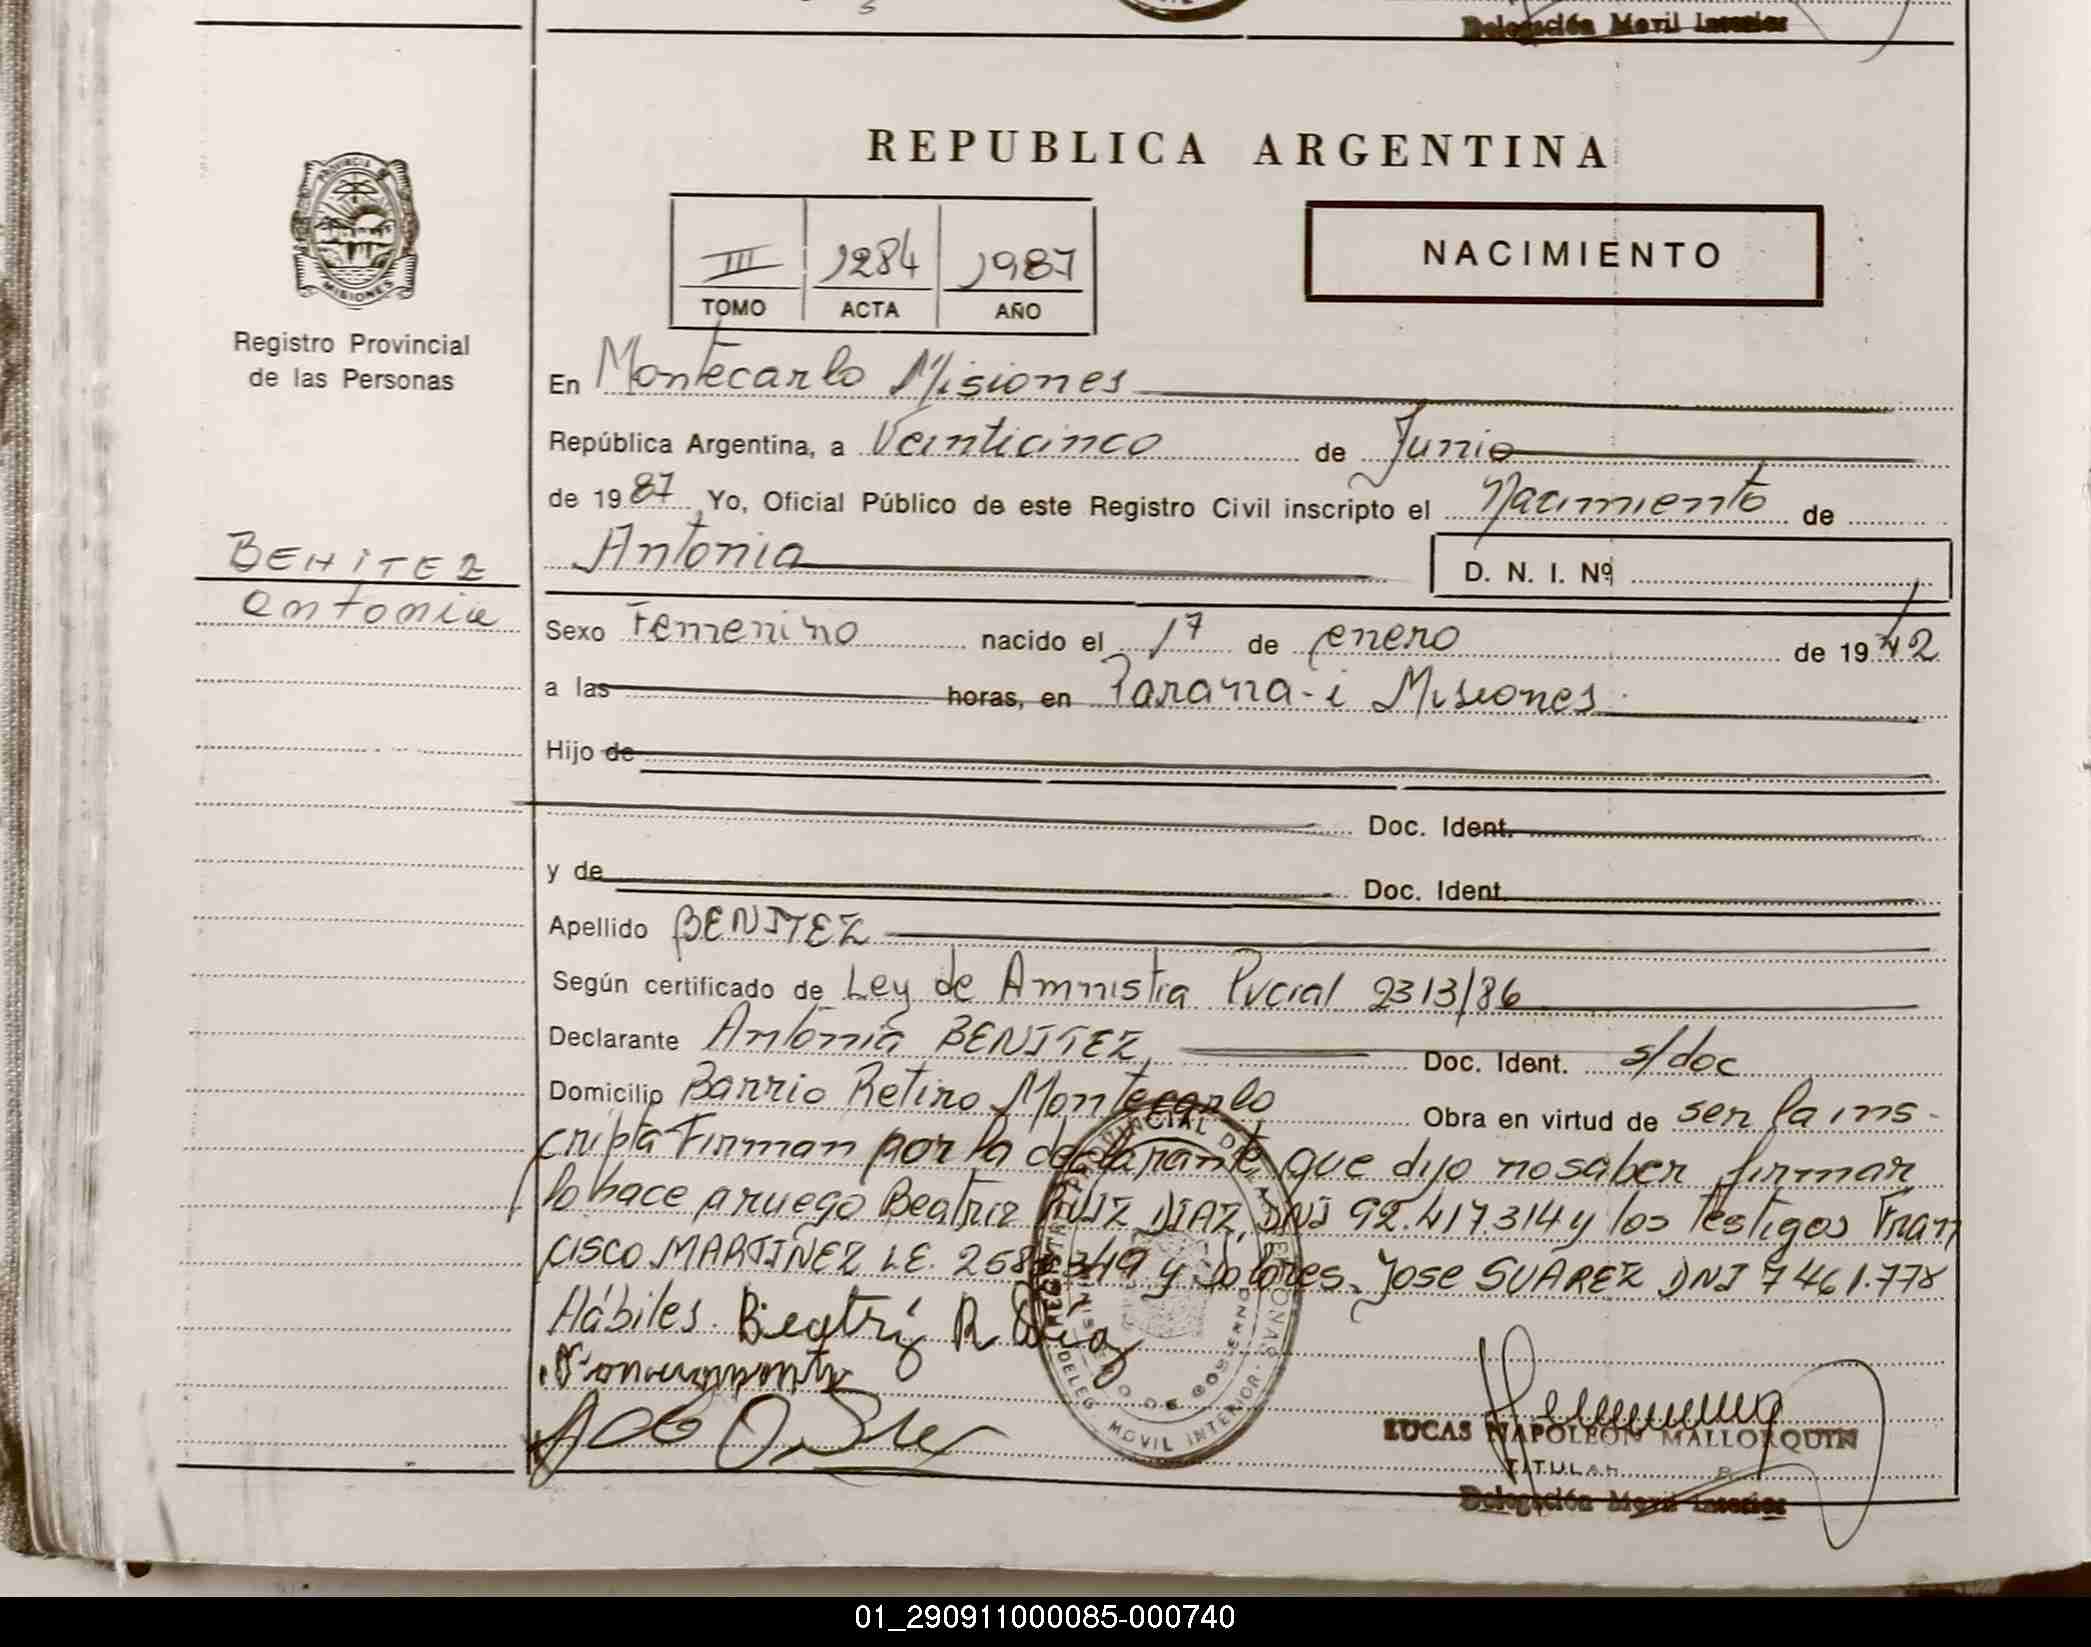 Delegación Movil Interior
REPUBLICA ARGENTINA
PROVINCIA DE
MISIONES
Registro Provincial
de las Personas
III 1284 1987
TOMO ACTA AÑO
NACIMIENTO
En Montecarlo Misiones
República Argentina, a Veinticinco de Junio
de 1987 Yo, Oficial Público de este Registro Civil inscripto el Nacimiento de
BENITEZ
Antonia
Antonia D. N. I. Nº
Sexo Femenino nacido el 17 de enero de 1942
a las horas, en Parana-i Misiones
Hijo de
Doc. Ident.
y de Doc. Ident.
Apellido BENITEZ
Según certificado de Ley de Amnistia Pvcial 2313/86
Declarante Antonia BENITEZ, Doc. Ident. s/doc
Domicilio Barrio Retiro Montecarlo Obra en virtud de ser la ins-
cripta Firman por la declarante que dijo no saber firmar
lo hace a ruego Beatriz RUIZ DIAZ, DNI 92.417.314 y los testigos Fran
cisco MARTIÑEZ L.E. 349 y Dolores Jose SUÁREZ DNI 7461.778
Hábiles. Beatriz R Diaz
LUCAS NAPOLEON MALLORQUIN
TITULAR
Delegación Movil Interior
REGISTRO PROVINCIAL DE LAS PERSONAS
MINISTERIO DE GOBIERNO
DELEG. MOVIL INTERIOR
01_290911000085-000740